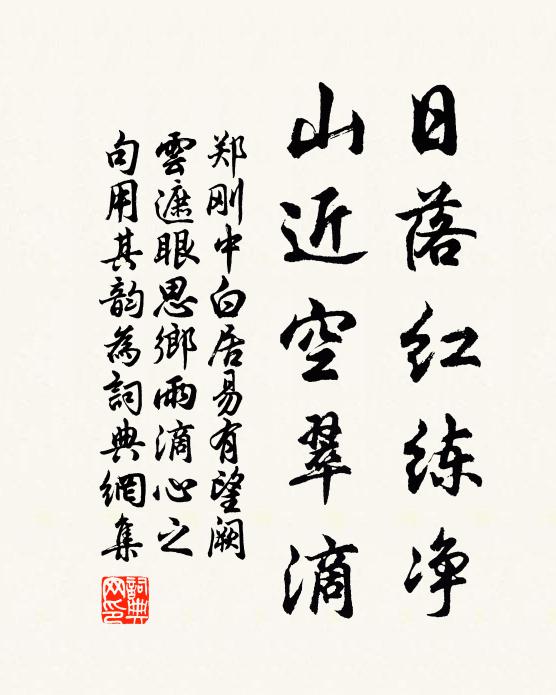 日落红练净
山近空翠滴
郑刚中白居易有望阙
雲遮眼思鄉雨滴心之
句用其韵為詞典網集
詞典網印